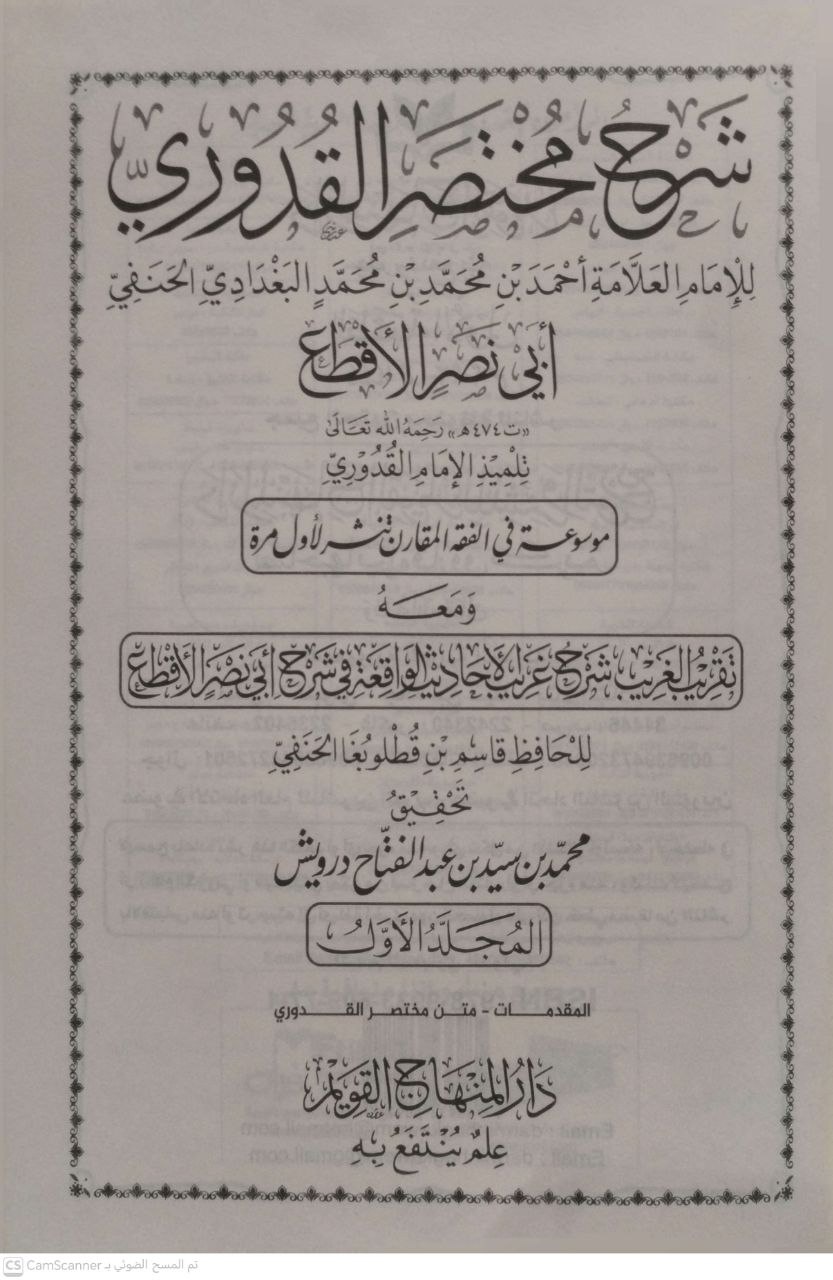 شَرْحُ مُخْتَصَرِ القُدُورِيِّ
لِلإِمَامِ العَلَّامَةِ أَحْمَدَ بْنِ مُحَمَّدِ بْنِ مُحَمَّدٍ البَغْدَادِيِّ الحَنَفِيِّ
أَبِي نَصْرٍ الأَقْطَعِ
«ت ٤٧٤ هـ» رَحِمَهُ اللهُ تَعَالَى
تِلْمِيذِ الإِمَامِ القُدُوْرِيِّ
موسوعة في الفقه المقارن تنشر لأول مرة
وَمَعَهُ
تَقْرِيبُ الغَرِيْبِ شَرْحُ غَرِيبِ الأَحَادِيثِ الوَاقِعَةِ فِي شَرْحِ أَبِي نَصْرٍ الأَقْطَعِ
لِلْحَافِظِ قَاسِمِ بْنِ قُطْلُوبُغَا الحَنَفِيِّ
تَحْقِيْقُ
محمّد بن سيّد بن عبد الفتّاح درويش
المُجَلَّدُ الأَوَّلُ
المقدمات - متن مختصر القدوري
دَارُ المِنْهَاجِ القَوِيْمِ
عِلمٌ يُنْتَفَعُ بِهِ
CS CamScanner تم المسح الضوئي بـ